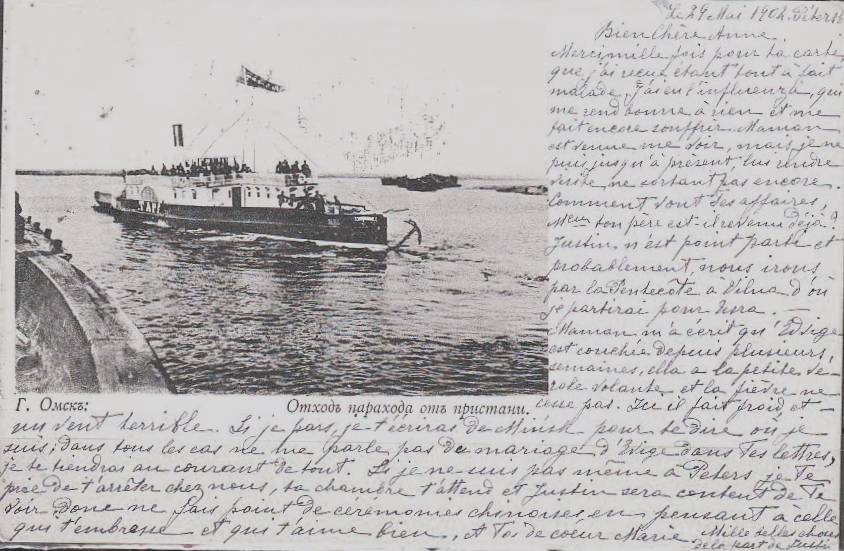 Le 29 Mai 1902. Petersb
Bien Chère Anne.
Merci mille fois pour ta carte
que j'ai reçue étant tout à fait
malade, j'ai eu l'influenza, qui
me rend bonne à rien et me
fait encore souffrir. Maman
est venue me voir, mais je ne
puis jusqu'à présent lui rendre
visite ne sortant pas encore.
Comment vont tes affaires,
ton père est-il revenu déjà?
Justin n'est point parti et
probablement nous irons
par la Pentecôte a Vilna d'où
je partirai pour
Maman m'a ecrit qu'Edvige
est couchée depuis plusieurs
semaines, ella a la petite vé-
role volante et la fièvre ne
cesse pas. Ici il fait froid, et -
Г. Омскъ:
Отходъ парахода отъ пристани.
un vent terrible. Si je pars, je t'écrirai de Minsk pour te dire où je
suis; dans tous les cas ne me parle pas du mariage d'Edvige dans Tes lettres,
je te tiendrai au courant de tout. Si je ne suis pas même à Peters. je Te
prie de t'arrêter chez nous, ta chambre t'attend et Justin sera content de Te
voir donc ne fais point de ceremonies chinoises en pensant à celle
qui t'embrasse et qui t'aime bien, A Toi de coeur Marie
Mille belles choses
de la part de Justin